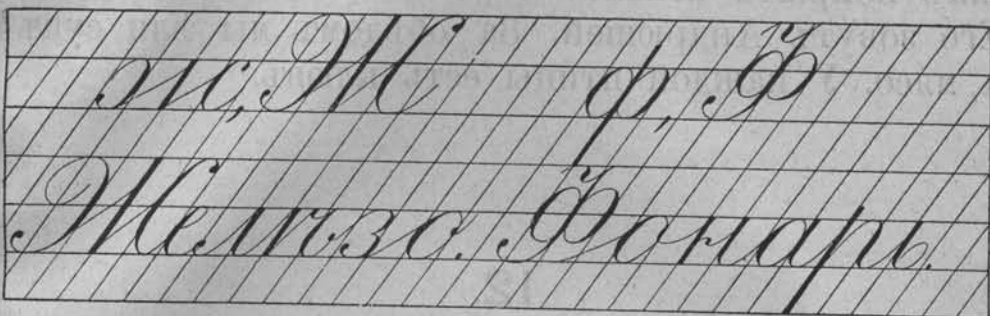 ж, Ж ф, Ф
Желѣзо. Фонарь.